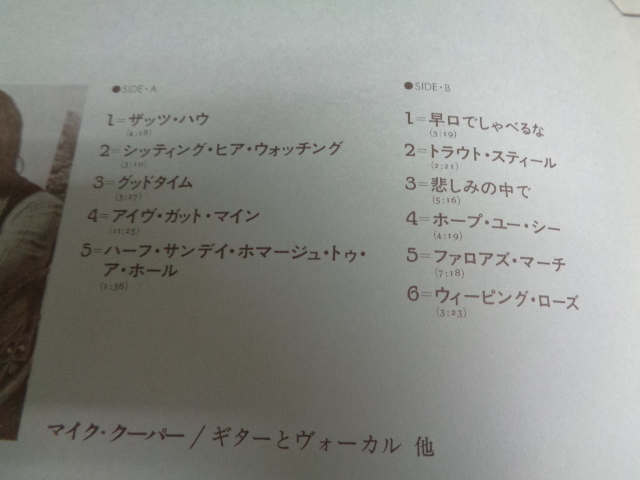 ●SIDE・A
1=ザッツ・ハウ
(4:18)
2=シッティング・ヒア・ウォッチング
(3:10)
3=グッドタイム
(3:27)
4=アイヴ・ガット・マイン
(11:25)
5=ハーフ・サンデイ・ホマージュ・トゥ・
ア・ホール
(1:36)
●SIDE・B
1=早口でしゃべるな
(3:19)
2=トラウト・スティール
(2:21)
3=悲しみの中で
(5:16)
4=ホープ・ユー・シー
(4:19)
5=ファロアズ・マーチ
(7:18)
6=ウィーピング・ローズ
(3:23)
マイク・クーパー/ギターとヴォーカル 他